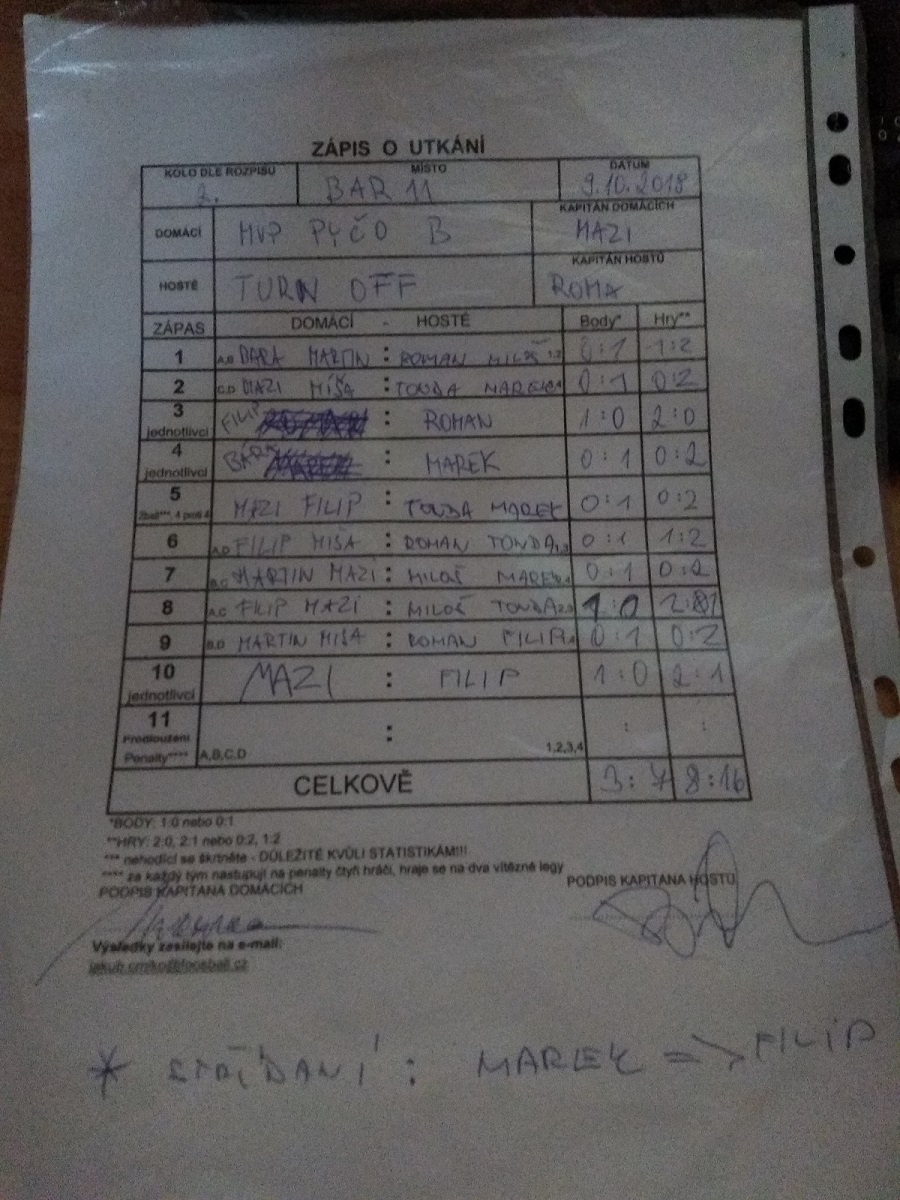 ZÁPIS O UTKÁNÍ
KOLO DLE ROZPISU MÍSTO DATUM
2. BAR 11 9.10.2018
DOMÁCÍ MVP PYČO B KAPITÁN DOMÁCÍCH MAZI
HOSTÉ TURN OFF KAPITÁN HOSTŮ ROMA
ZÁPAS DOMÁCÍ - HOSTÉ Body* Hry**
1 A,B BÁRA MARTIN : ROMAN MILOŠ 1,2 0:1 1:2
2 C,D MAZI MÍŠA : TONDA MAREK 0:1 0:2
3 jednotlivci FILIP : ROMAN 1:0 2:0
4 jednotlivci BÁRA : MAREK 0:1 0:2
5 4 proti 4 MAZI FILIP : TONDA MAREK 0:1 0:2
6 A,D FILIP MIŠA : ROMAN TONDA 1,3 0:1 1:2
7 B,C MARTIN MAZI : MILOŠ MAREK 0:1 0:2
8 A,C FILIP MAZI : MILOŠ TONDA 2,3 1:0 2:1
9 B,D MARTIN MIŠA : ROMAN FILIP 0:1 0:2
10 jednotlivci MAZI : FILIP 1:0 2:1
11 Prodloužení Penalty**** A,B,C,D : 1,2,3,4 : :
CELKOVĚ 3:7 8:16
*BODY: 1:0 nebo 0:1
**HRY: 2:0, 2:1 nebo 0:2, 1:2
*** nehodící se škrtněte - DŮLEŽITÉ KVŮLI STATISTIKÁM!!!
**** za každý tým nastupují na penalty čtyři hráči, hraje se na dva vítězné legy
PODPIS KAPITÁNA DOMÁCÍCH PODPIS KAPITÁNA HOSTŮ
Výsledky zesílejte na e-mail:
* STŘÍDANÍ : MAREK => FILIP